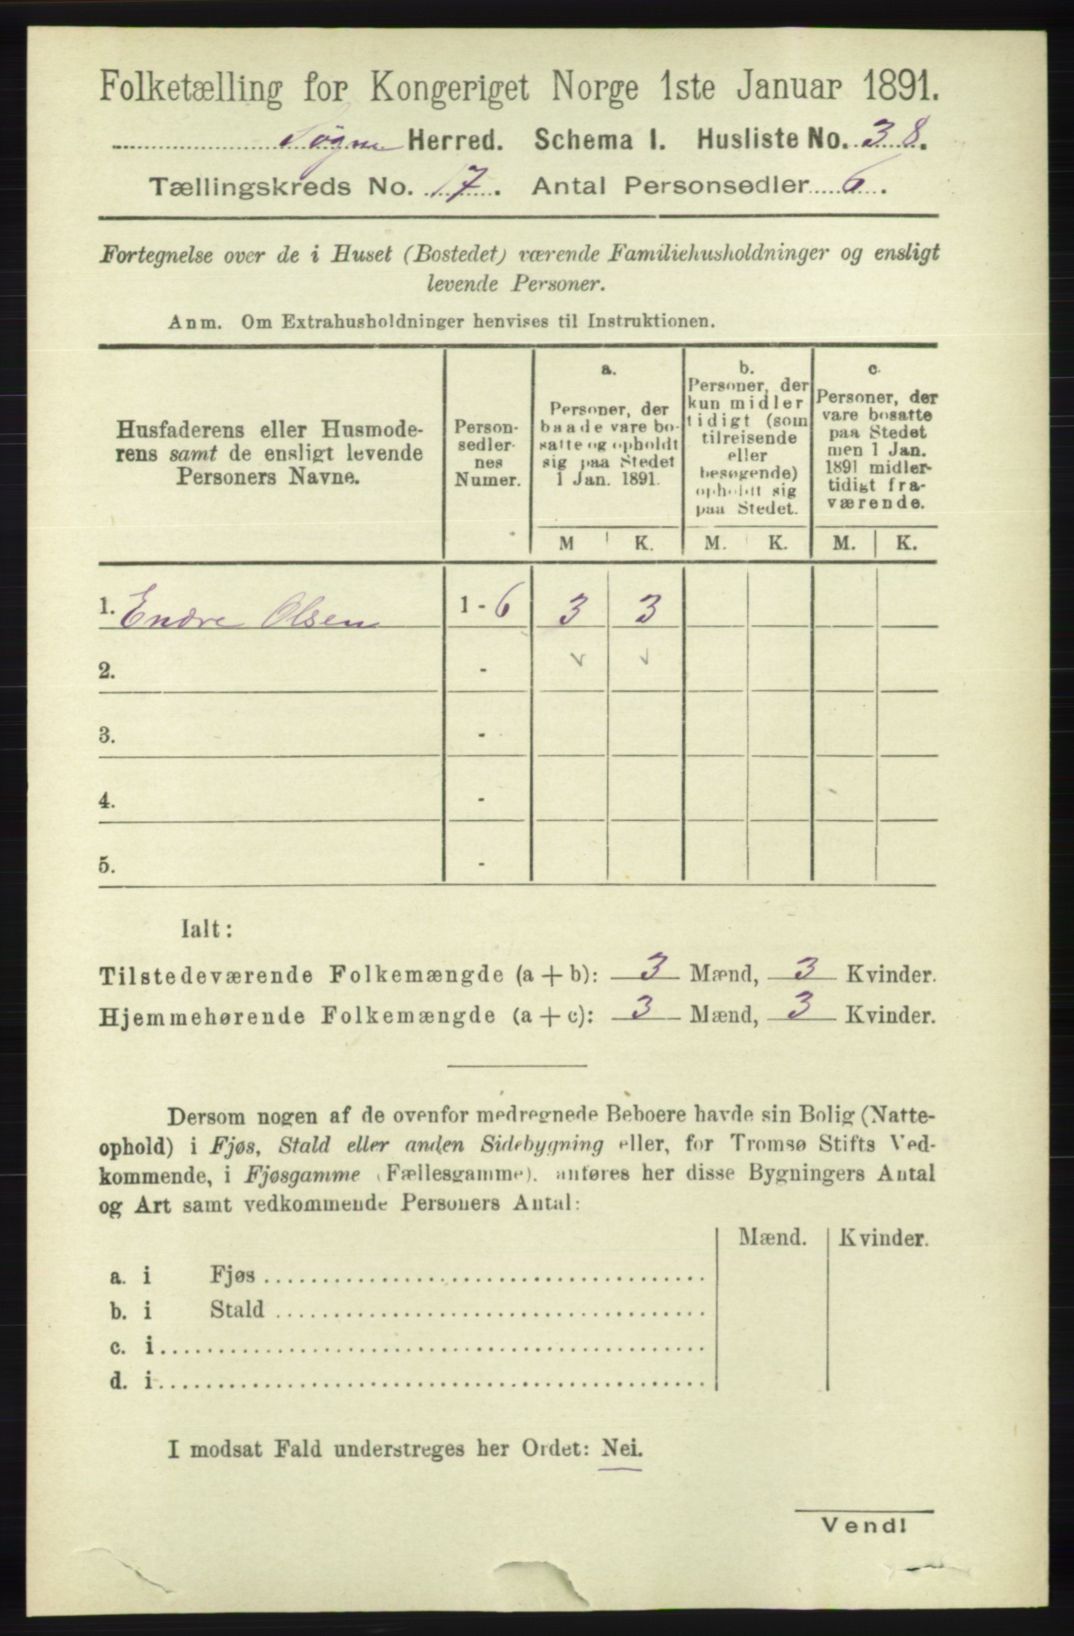 Folketælling for Kongeriget Norge 1ste Januar 1891.
Søgne Herred. Schema I. Husliste No. 38.
Tællingskreds No. 17. Antal Personsedler 6.
Fortegnelse over de i Huset (Bostedet) værende Familiehusholdninger og ensligt
levende Personer.
Anm. Om Extrahusholdninger henvises til Instruktionen.
Husfaderens eller Husmode-
rens samt de ensligt levende
Personers Navne.
Person-
sedler-
nes
Numer.
a.
Personer, der
baade vare bo-
satte og opholdt
sig paa Stedet
1 Jan. 1891.
b.
Personer, der
kun midler
tidigt (som
tilreisende
eller
besøgende)
opholdt sig
paa Stedet.
c.
Personer, der
vare bosatte
paa Stedet
men 1 Jan.
1891 midler-
tidigt fra-
værende.
M K. M. K. M. K.
1. Endre Olsen 1 - 6 3 3
2. -
3. -
4. -
5. -
Ialt:
Tilstedeværende Folkemængde (a + b): 3 Mænd, 3 Kvinder.
Hjemmehørende Folkemængde (a + c): 3 Mænd, 3 Kvinder.
Dersom nogen af de ovenfor medregnede Beboere havde sin Bolig (Natte-
ophold) i Fjøs, Stald eller anden Sidebygning eller, for Tromsø Stifts Ved-
kommende, i Fjøsgamme (Fællesgamme), anføres her disse Bygningers Antal
og Art samt vedkommende Personers Antal:
Mænd. Kvinder.
a. i Fjøs
b. i Stald
c. i
d. i
I modsat Fald understreges her Ordet: Nei.
Vend!